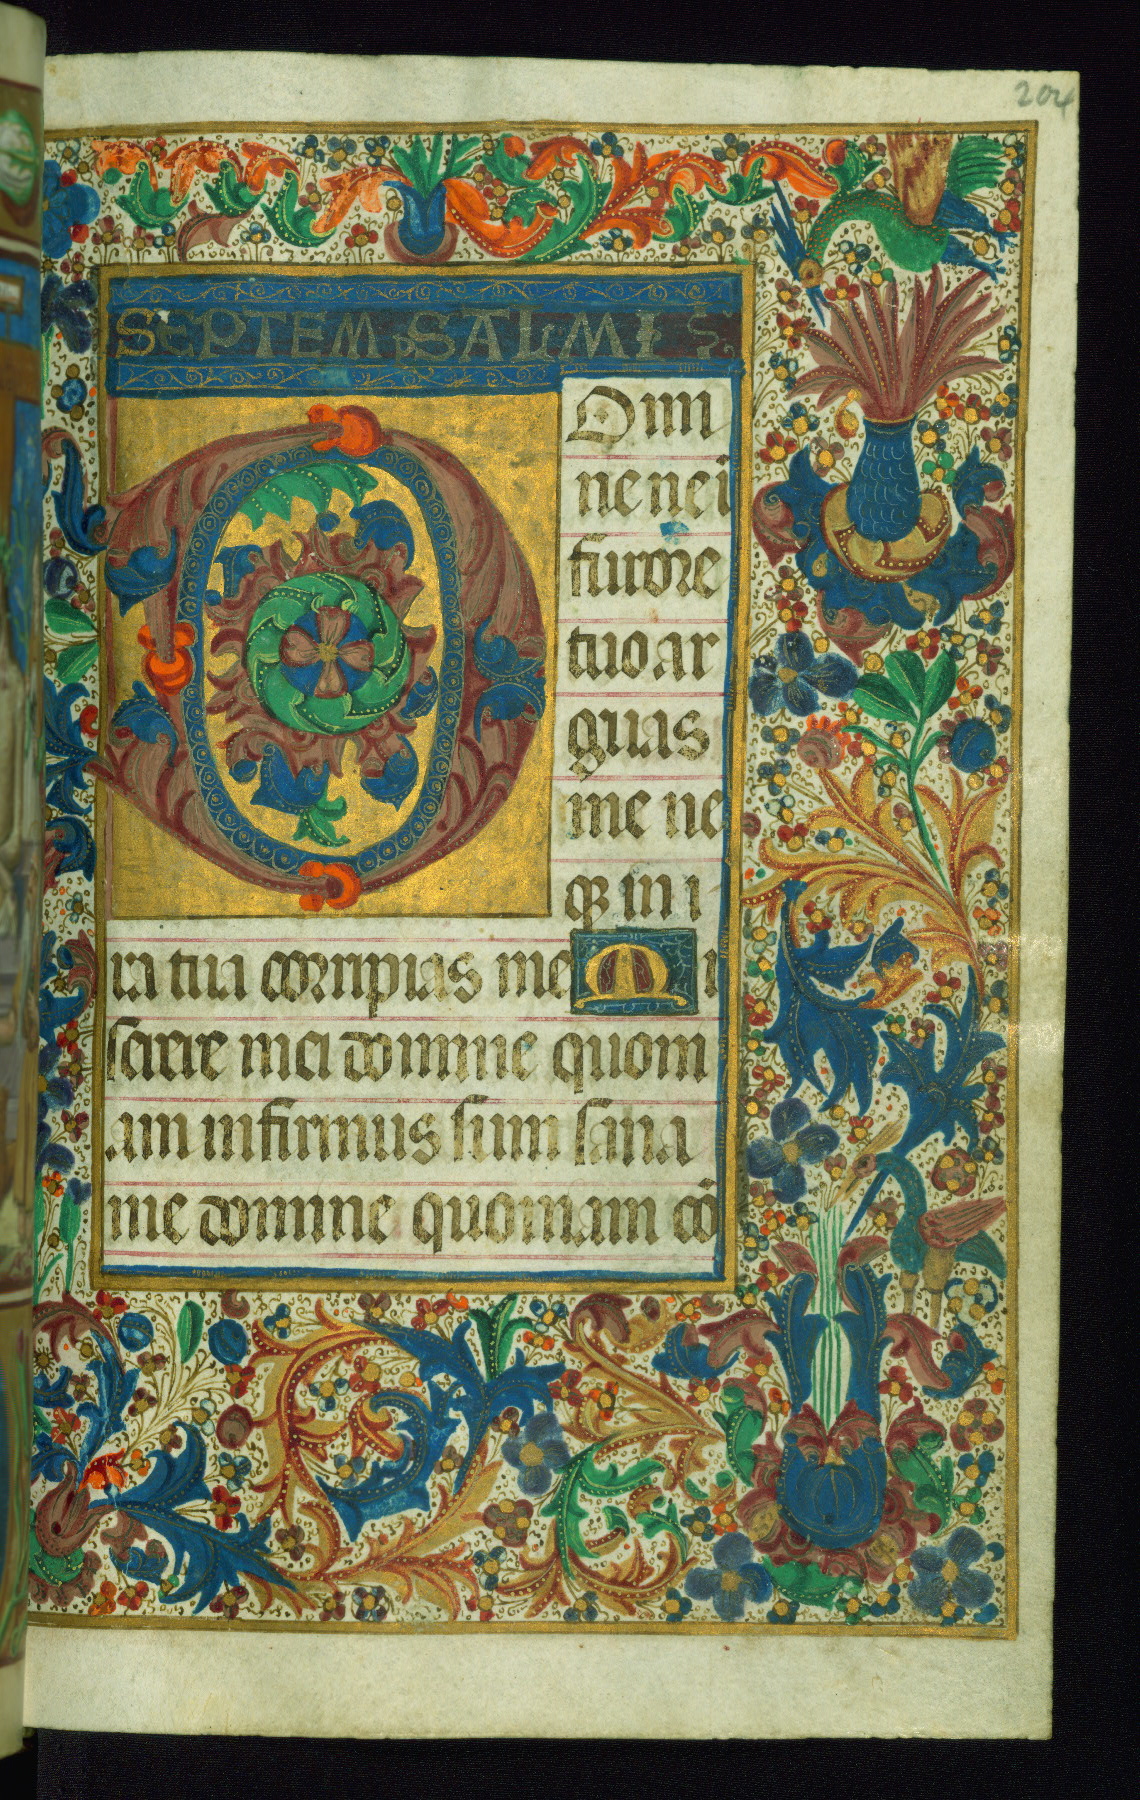 204
SEPTEM PSALMIS
Omi
ne ne i
furore
tuo ar
guas
me ne
qȝ in i
ra tua corripias me M i
serere mei domine quom
am infirmus sum sana
me domine quoniam cō